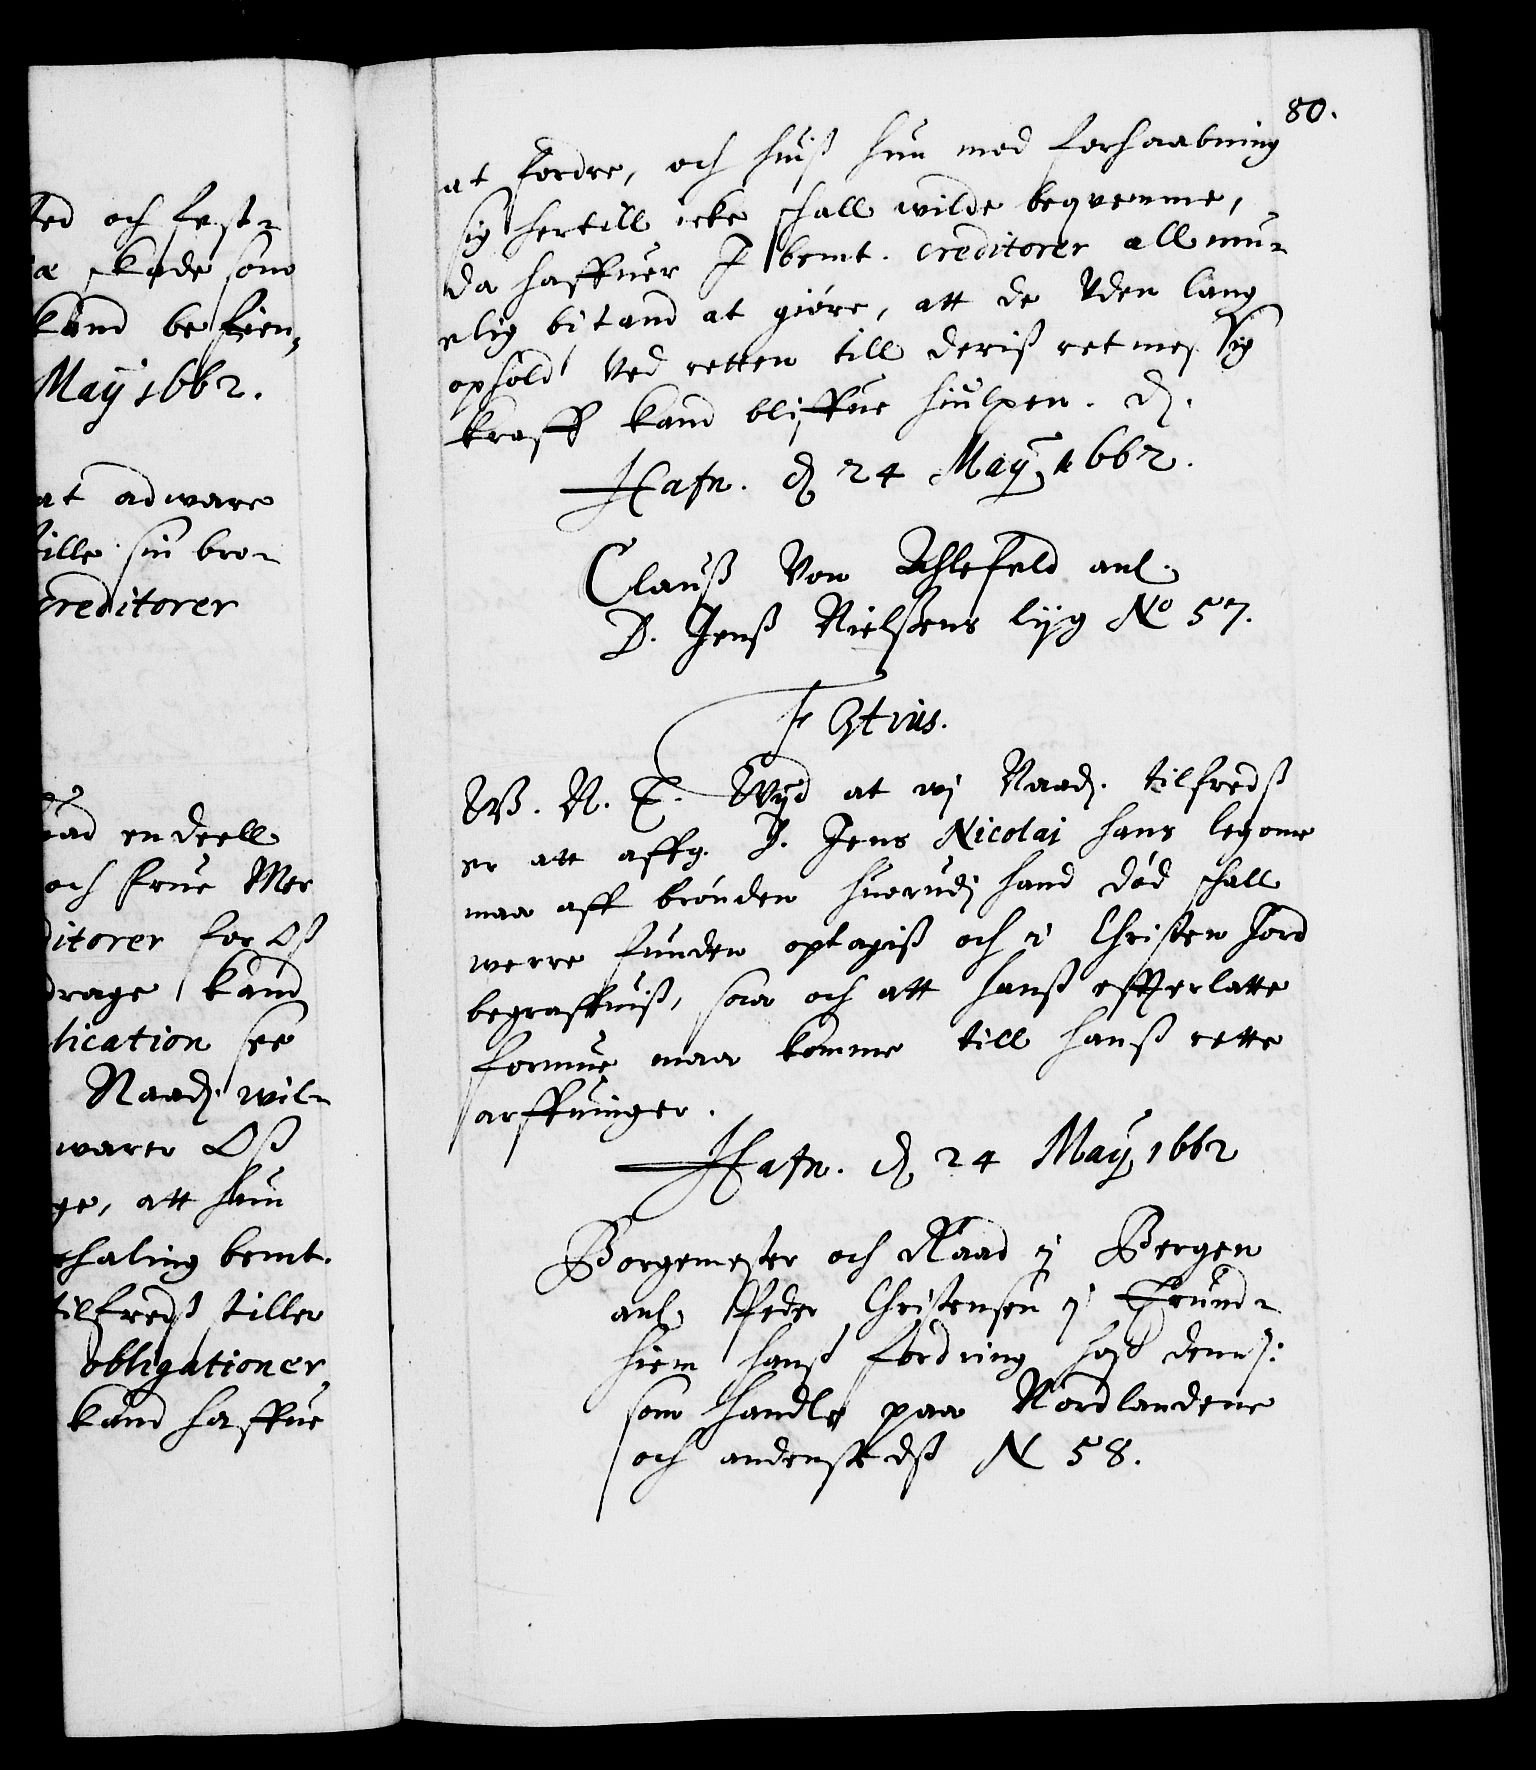 ted och fest-
skade som
kand befien,
May 1662.
at adware
tille sin bro-
creditorer
endeell
och frue Mer
ditorer for Oß
drage kand
lication see
Naadj. wil-
warer Oß
ge, att hun
thaling bemt.
tilfredß tiller
obligationer,
kand haffue
80.
at fordre, och huiß hun mod forhaabning
sig hertill icke schall wilde beqvemme,
da haffuer I bemt. creditorer all mu-
elig bistand at giöre, att de Uden lang
ophold Ved retten till deriß retmessig
kraff kand bliffue hiulpen. D.
Hafn. d 24 May 1662.
Clauß Von Ahlefeld anl.
D. Jenß Nielßens liig No 57.
F 3tius.
W. N. T. Wijd at wj Naadj. tilfredß
er att affg. D. Jens Nicolai hans legome
maa aff brönden huorudj hand död schall
werre funden optagiß och i Christen Jord
begraffuiß, saa och att hanß effterlatte
formue maa komme till hanß rette
arffuinger.
Hafn. d 24 May 1662
Borgemester och Raad ij Bergen
anl. Peder Christensen ij Trund-
hiem hanß fordring hoß dennj:
som handle paa Nordlandene
och andenstedß N 58.